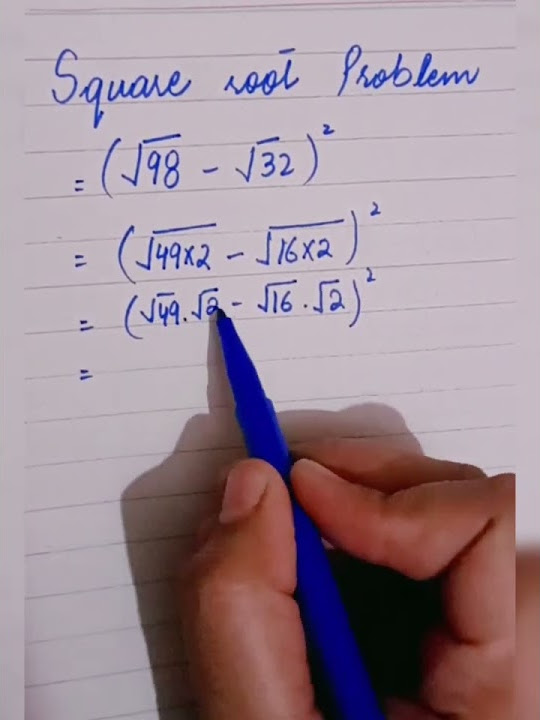 Square root Problem
= (√98 - √32)²
= (√49×2 - √16×2)²
= (√49.√2 - √16.√2)²
=